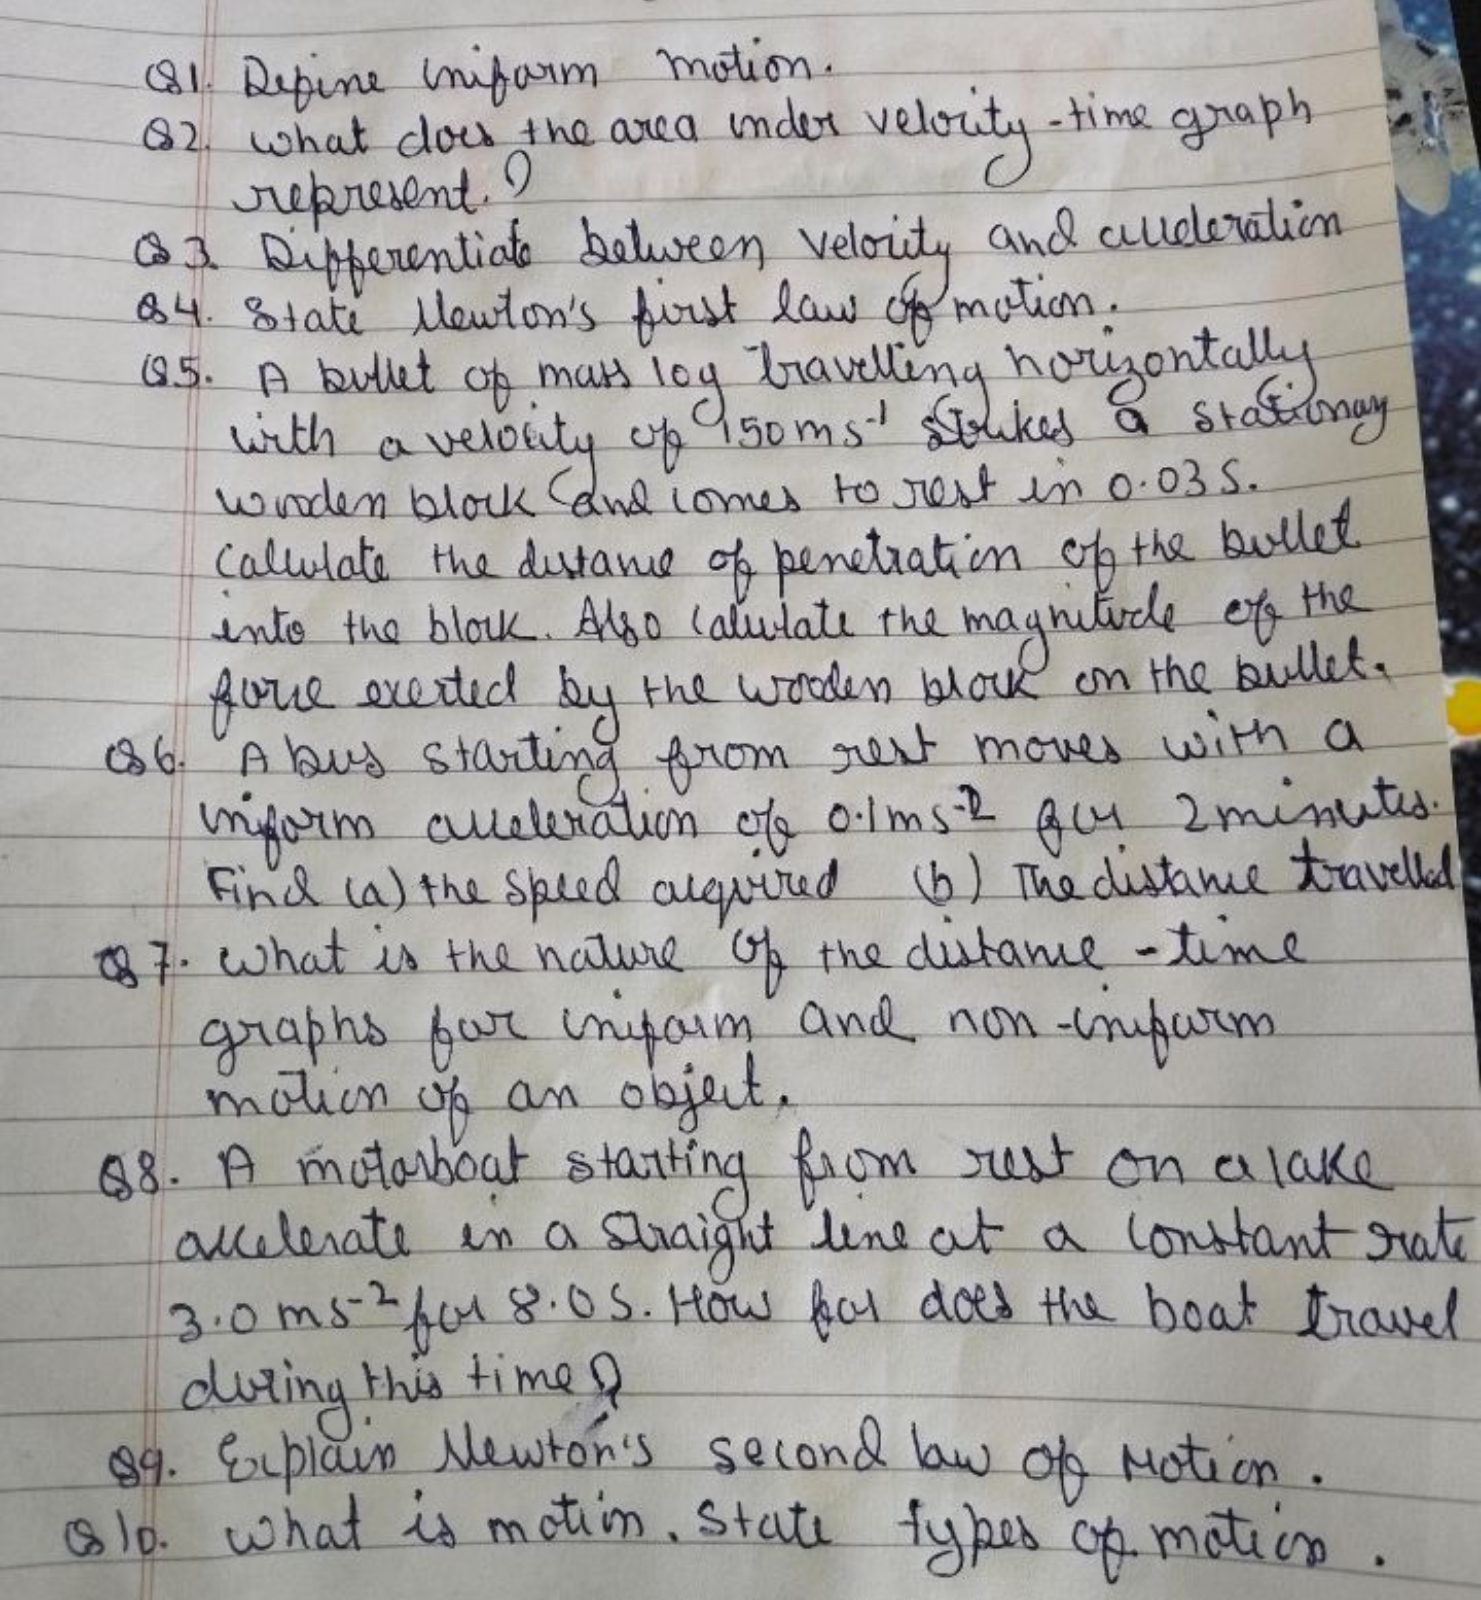 Q1. Define uniform motion.
Q2. What does the area under velocity-time graph
represent.?
Q3. Differentiate between velocity and acceleration
Q4. State Newton's first law of motion.
Q5. A bullet of mass 10g travelling horizontally
with a velocity of 150ms⁻¹ strikes a stationay
wooden block and comes to rest in 0.03 S.
Calculate the distance of penetration of the bullet
into the block. Also calculate the magnitude of the
force exerted by the wooden block on the bullet.
Q6. A bus starting from rest moves with a
uniform acceleration of 0.1ms⁻² for 2 minutes.
Find (a) the speed acquired (b) The distance travelled
Q7. What is the nature of the distance-time
graphs for uniform and non-uniform
motion of an object.
Q8. A motorboat starting from rest on a lake
accelerate in a straight line at a constant rate
3.0 ms⁻² for 8.0 S. How far does the boat travel
during this time?
Q9. Explain Newton's second law of Motion.
Q10. What is motion. State types of motion.